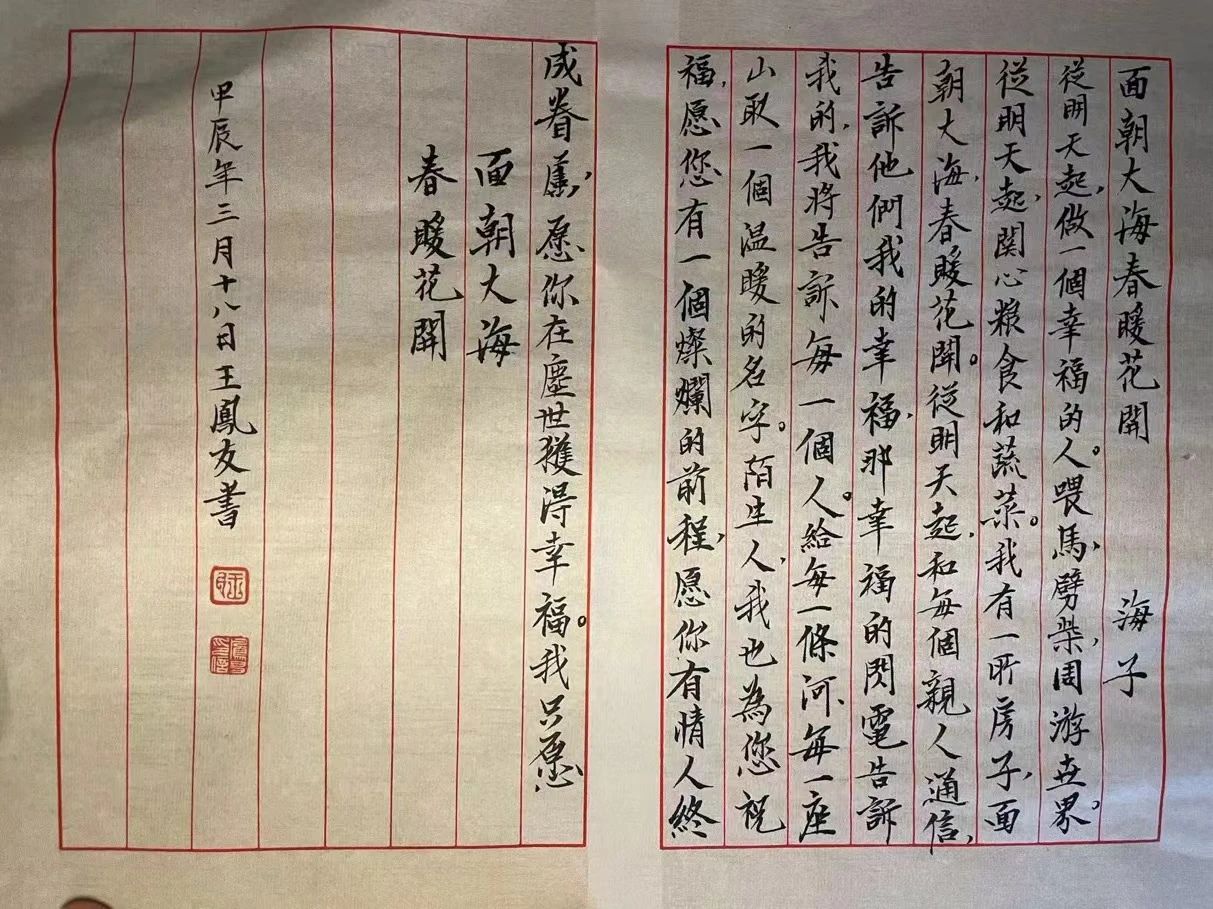 面朝大海春暖花開 海子
從明天起,做一個幸福的人。喂馬,劈柴,周游世界。
從明天起,関心粮食和蔬菜。我有一所房子,面
朝大海,春暖花開。從明天起,和每個親人通信,
告訴他們我的幸福,那幸福的閃電告訴
我的,我將告訴每一個人。給每一條河,每一座
山取一個温暖的名字。陌生人,我也為您祝
福,愿您有一個燦爛的前程,愿你有情人終
成眷属,愿你在塵世獲得幸福。我只愿
面朝大海
春暖花開
甲辰年三月十八日王鳳友書